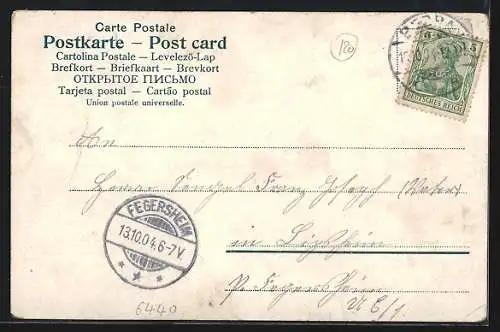 Carte Postale
Postkarte — Post card
Cartolina Postale — Levelező-Lap
Brefkort — Briefkaart — Brevkort
ОТКРЫТОЕ ПИСЬМО
Tarjeta postal — Cartão postal
Union postale universelle.
120
5 5
DEUTSCHES REICH
An
Herrn Franz Joseph (Vater)
in
FEGERSHEIM
13.10.04.6-7V
p. Fegersheim
U. E/1.
6440